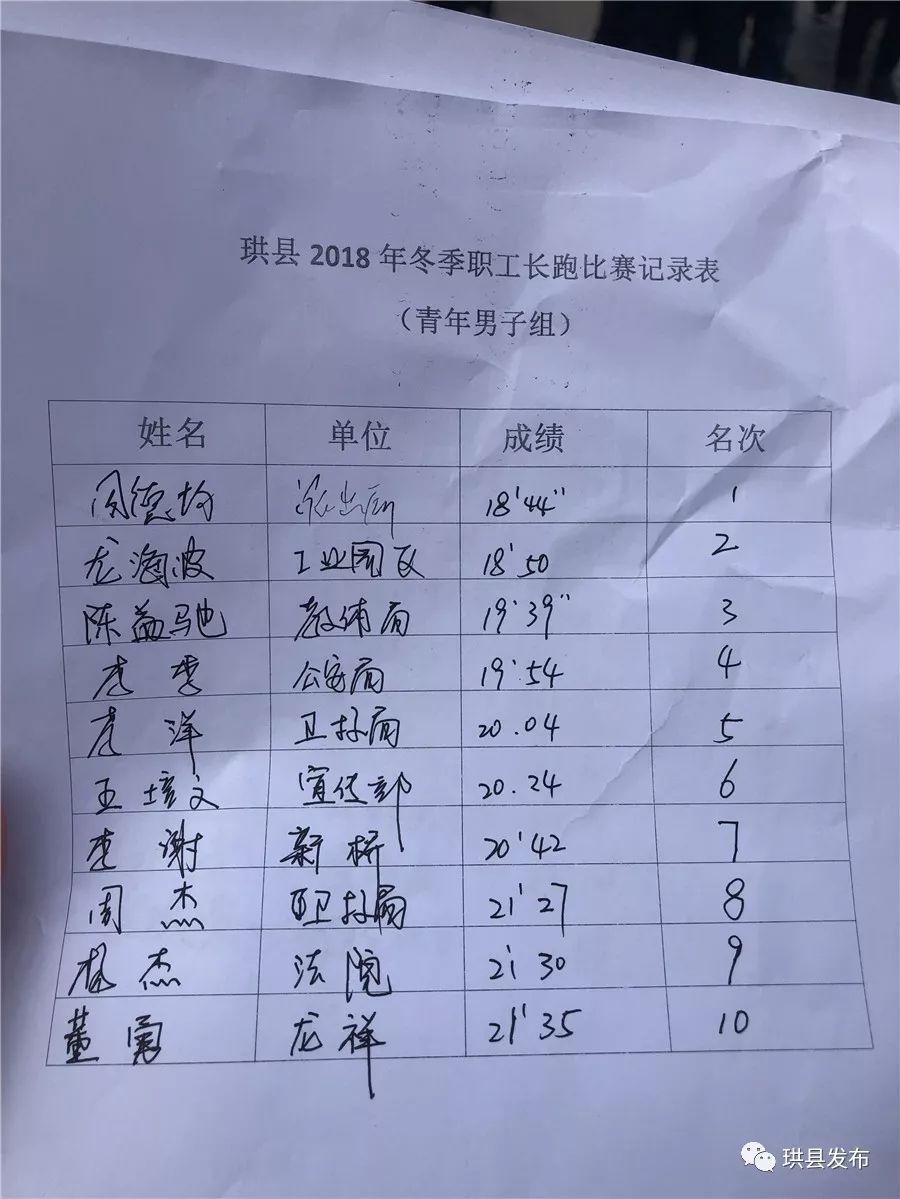 珙县 2018 年冬季职工长跑比赛记录表
（青年男子组）
姓名 单位 成绩 名次
周德均 派出所 18'44" 1
龙海波 工业园区 18'50 2
陈益驰 教体局 19'39" 3
李 公安局 19'54 4
洋 卫计局 20.04 5
王培文 宣传部 20.24 6
李谢 新桥 20'42 7
周杰 卫计局 21'27 8
杨杰 法院 21'30 9
董勇 龙祥 21'35 10
珙县发布